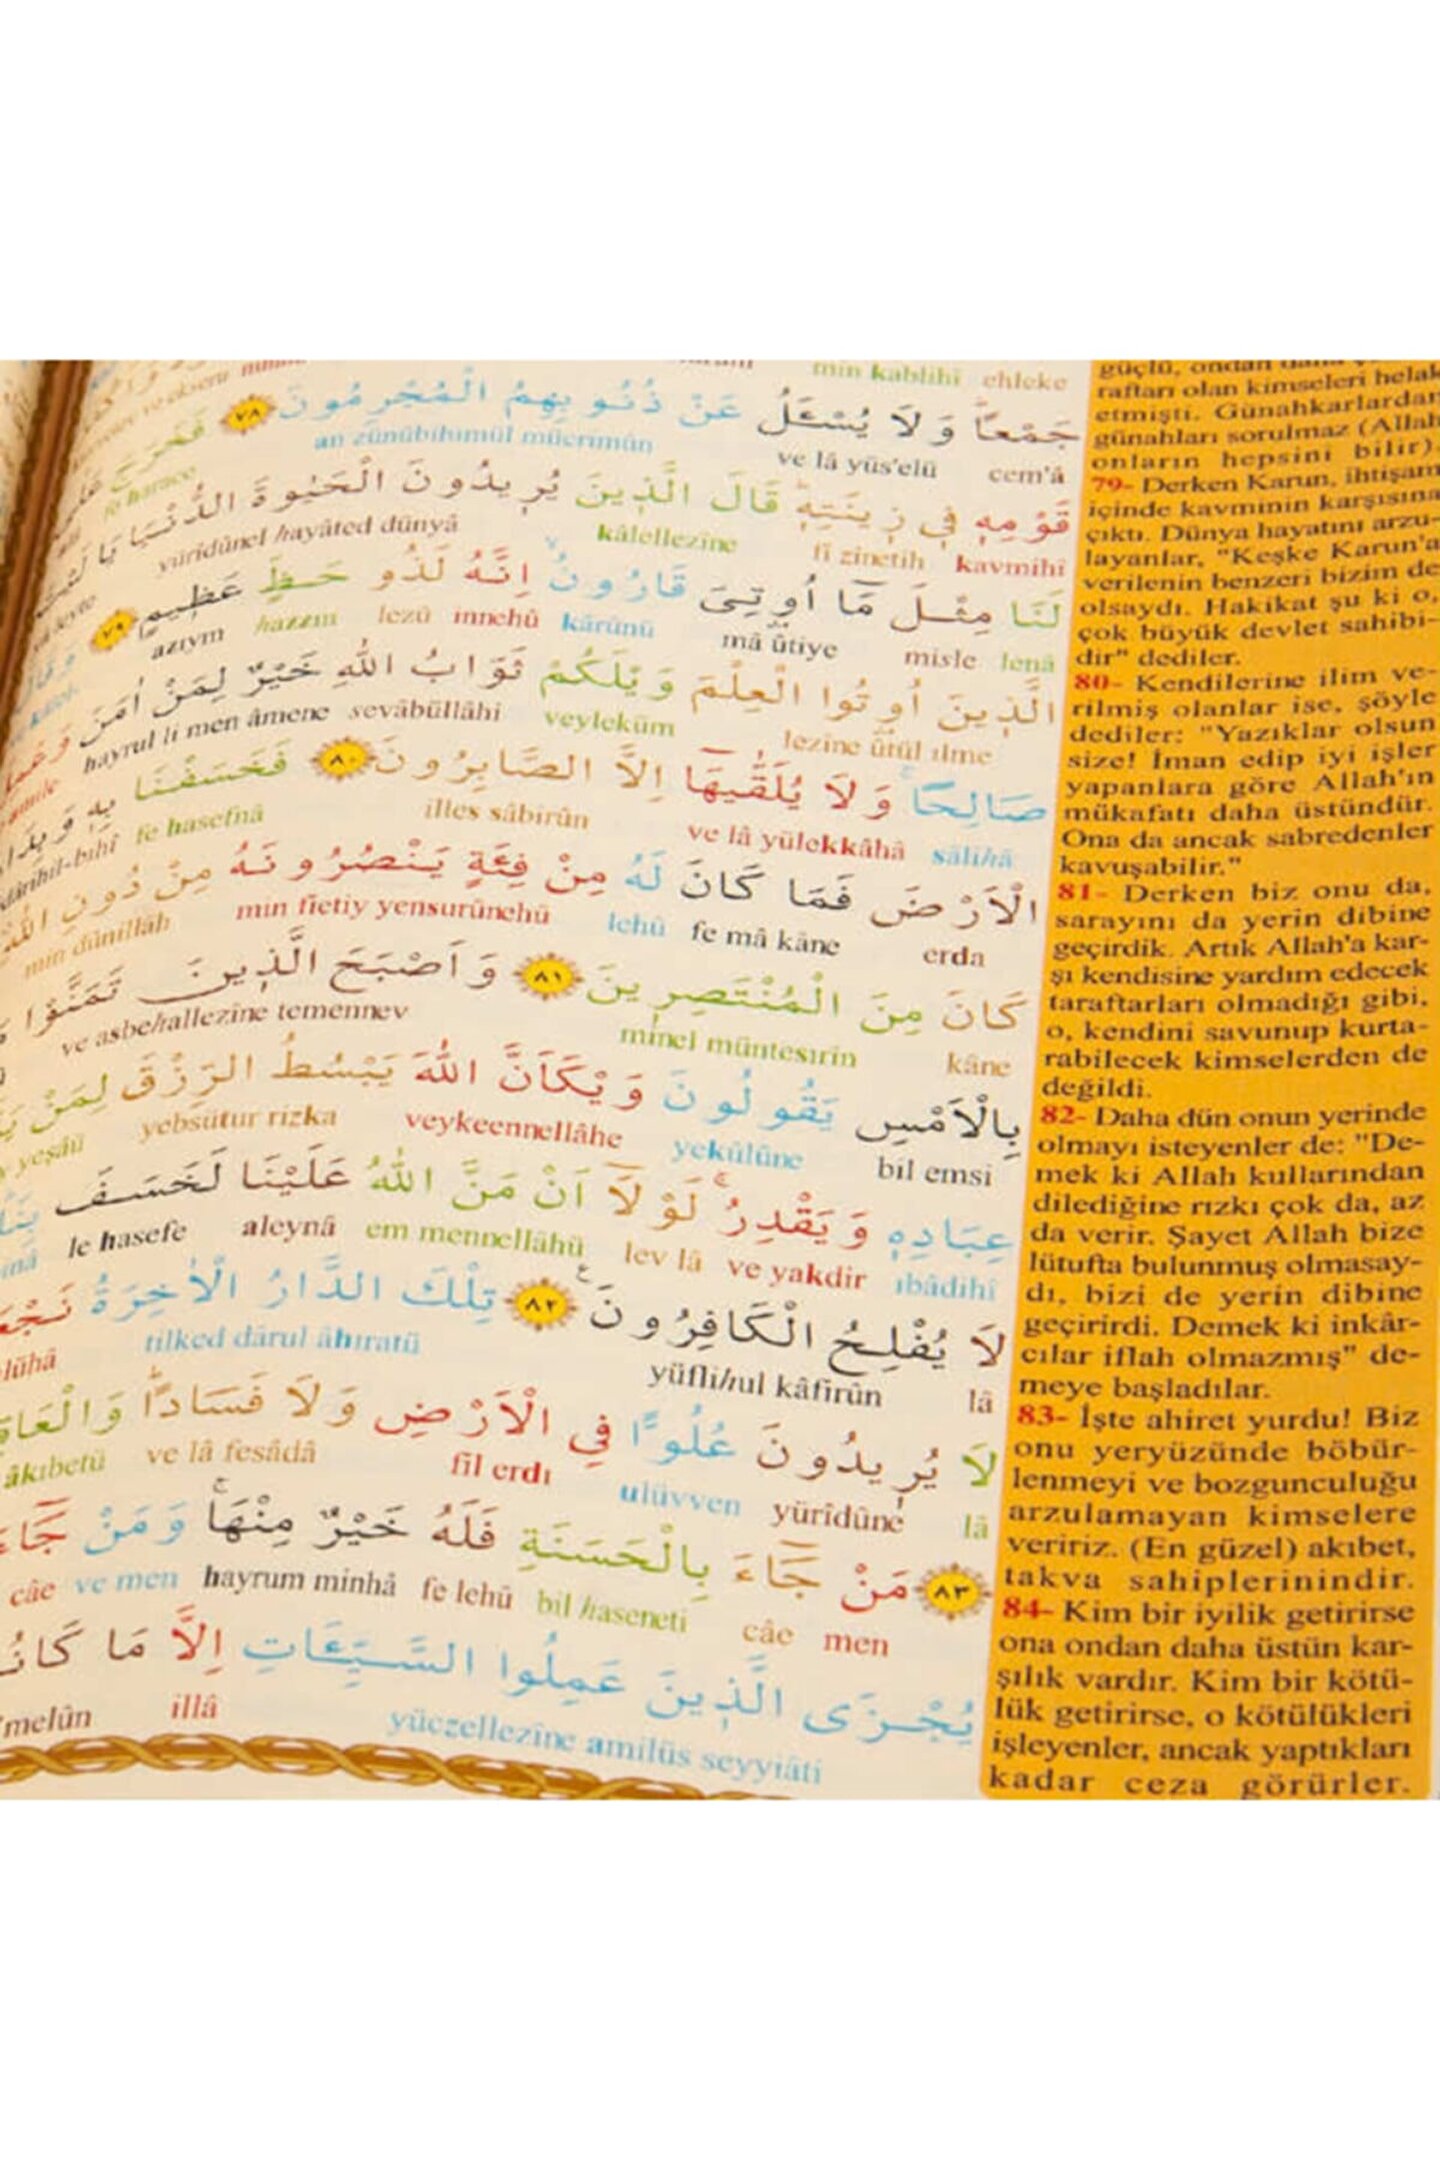 min kablihî ehleke
جَمْعًا وَلَا يُسْـَٔلُ عَنْ ذُنُوبِهِمُ الْمُجْرِمُونَ ٧٨ فَخَرَجَ
cem'â ve lâ yüs'elü an zünûbihimül mücrimûn fe harace
قَوْمِهٖ فٖي زٖينَتِهٖ قَالَ الَّذٖينَ يُرٖيدُونَ الْحَيٰوةَ الدُّنْيَا يَا لَيْتَ
kavmihî fî zînetih kâlellezîne yürîdûnel hayâted dünyâ
لَنَا مِثْلَ مَٓا اُو۫تِيَ قَارُونُ اِنَّهُ لَذُو حَظٍّ عَظٖيمٍ ٧٩
lenâ misle mâ ûtiye kârûnü innehû lezû hazzın azıym
الَّذٖينَ اُو۫تُوا الْعِلْمَ وَيْلَكُمْ ثَوَابُ اللّٰهِ خَيْرٌ لِمَنْ اٰمَنَ
lezîne ûtül ılme veyleküm sevâbüllâhi hayrul li men âmene
صَالِحًا وَلَا يُلَقّٰيهَٓا اِلَّا الصَّابِرُونَ ٨٠ فَخَسَفْنَا بِهٖ
sâlihâ ve lâ yülekkâhâ illes sâbirûn fe hasefnâ
الْاَرْضَ فَمَا كَانَ لَهُ مِنْ فِئَةٍ يَنْصُرُونَهُ مِنْ دُونِ اللّٰهِ
erda fe mâ kâne lehû min fietiy yensurûnehû min dûnillâh
كَانَ مِنَ الْمُنْتَصِرٖينَ ٨١ وَاَصْبَحَ الَّذٖينَ تَمَنَّوْا
kâne minel müntesırîn ve asbehallezîne temennev
بِالْاَمْسِ يَقُولُونَ وَيْكَاَنَّ اللّٰهَ يَبْسُطُ الرِّزْقَ لِمَنْ
bil emsi yekûlûne veykeennellâhe yebsütur rizka yeşâü
عِبَادِهٖ وَيَقْدِرُ لَوْلَٓا اَنْ مَنَّ اللّٰهُ عَلَيْنَا لَخَسَفَ
ıbâdihî ve yakdir lev lâ em mennellâhü aleynâ le hasefe
لَا يُفْلِحُ الْكَافِرُونَ ٨٢ تِلْكَ الدَّارُ الْاٰخِرَةُ
lâ yüflihul kâfirûn tilked dârul âhıratü
لَا يُرٖيدُونَ عُلُوًّا فِي الْاَرْضِ وَلَا فَسَادًا
lâ yürîdûne ulüvven fil erdı ve lâ fesâdâ âkıbetü
٨٣ مَنْ جَٓاءَ بِالْحَسَنَةِ فَلَهُ خَيْرٌ مِنْهَا وَمَنْ جَٓاءَ
men câe bil haseneti fe lehû hayrum minhâ ve men câe
يُجْزَى الَّذٖينَ عَمِلُوا السَّيِّـَٔاتِ اِلَّا مَا
yüczellezîne amilüs seyyiâti illâ
raftarı olan kimseleri helak
etmişti. Günahkarlardan
günahları sorulmaz (Allah
onların hepsini bilir).
79- Derken Karun, ihtişam
içinde kavminin karşısına
çıktı. Dünya hayatını arzu-
layanlar, "Keşke Karun'a
verilenin benzeri bizim de
olsaydı. Hakikat şu ki o,
çok büyük devlet sahibi-
dir" dediler.
80- Kendilerine ilim ve-
rilmiş olanlar ise, şöyle
dediler: "Yazıklar olsun
size! İman edip iyi işler
yapanlara göre Allah'ın
mükafatı daha üstündür.
Ona da ancak sabredenler
kavuşabilir."
81- Derken biz onu da,
sarayını da yerin dibine
geçirdik. Artık Allah'a kar-
şı kendisine yardım edecek
taraftarları olmadığı gibi,
o, kendini savunup kurta-
rabilecek kimselerden de
değildi.
82- Daha dün onun yerinde
olmayı isteyenler de: "De-
mek ki Allah kullarından
dilediğine rızkı çok da, az
da verir. Şayet Allah bize
lütufta bulunmuş olmasay-
dı, bizi de yerin dibine
geçirirdi. Demek ki inkâr-
cılar iflah olmazmış" de-
meye başladılar.
83- İşte ahiret yurdu! Biz
onu yeryüzünde böbür-
lenmeyi ve bozgunculuğu
arzulamayan kimselere
veririz. (En güzel) akıbet,
takva sahiplerinindir.
84- Kim bir iyilik getirirse
ona ondan daha üstün kar-
şılık vardır. Kim bir kötü-
lük getirirse, o kötülükleri
işleyenler, ancak yaptıkları
kadar ceza görürler.